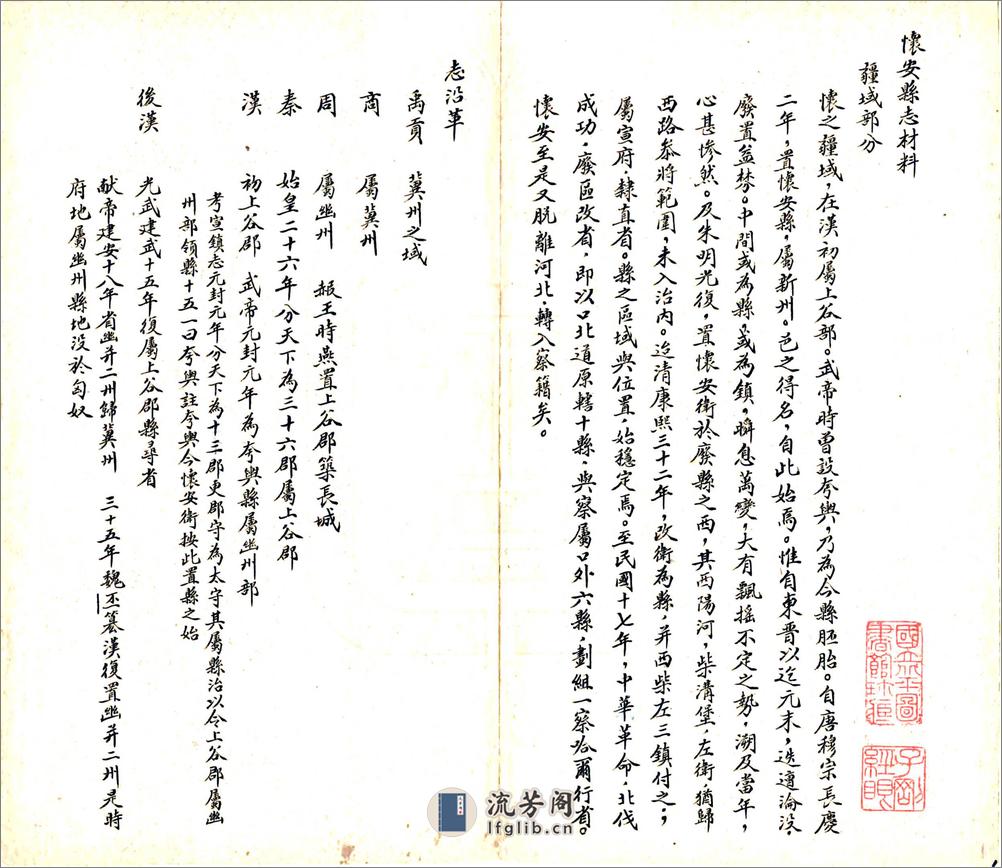 懷安縣志材料
疆域部分
懷之疆域，在漢初屬上谷部。武帝時曾設夸輿，乃為今縣胚胎。自唐穆宗長慶
二年，置懷安縣，屬新州。邑之得名，自此始焉。惟自東晋以迄元末，迭遭淪没，
廢置益棼。中間或為縣，或為鎮，瞬息萬變，大有飄摇不定之勢，溯及當年，
心甚惨然。及朱明光復，置懷安衛於廢縣之西，其西陽河，柴溝堡，左衛，猶歸
西路叅將範圍，未入治内。迨清康熙三十二年，改衛為縣，并西柴左三鎮付之，
屬宣府，隸直省。縣之區域與位置，始穩定焉。至民國十七年，中華革命，北伐
成功，廢區改省，即以口北道原轄十縣，與察屬口外六縣，劃組一察哈爾行省。
懷安至是又脱離河北，轉入察籍矣。
志沿革
禹貢 冀州之域
商 屬冀州
周 屬幽州 赧王時燕置上谷郡築長城
秦 始皇二十六年分天下為三十六郡屬上谷郡
漢 初上谷郡 武帝元封元年為夸輿縣屬幽州部
考宣鎮志元封元年分天下為十三郡更郡守為太守其屬縣治以今上谷郡屬幽
州部領縣十五一曰夸輿註夸輿今懷安衛按此置縣之始
後漢 光武建武十五年復屬上谷郡縣尋省
献帝建安十八年省幽并二州歸冀州 三十五年魏丕篡漢復置幽并二州是時
府地屬幽州縣地没於匈奴
國立北平圖
書館珍藏
子剛
經眼
流芳阁
lfglib.cn